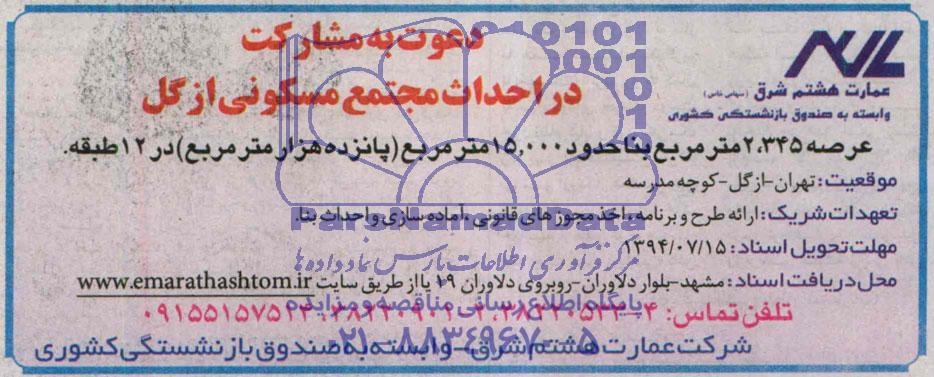 دعوت به مشارکت
در احداث مجتمع مسکونی ازگل
عمارت هشتم شرق (سهامی خاص)
وابسته به صندوق بازنشستگی کشوری
عرصه ۲،۳۴۵ مترمربع بنا حدود ۱۵،۰۰۰ متر مربع (پانزده هزار متر مربع) در ۱۲ طبقه.
موقعیت: تهران-ازگل-کوچه مدرسه
تعهدات شریک: ارائه طرح و برنامه، اخذ مجوزهای قانونی، آماده سازی و احداث بنا.
ParsNamadData
مهلت تحویل اسناد: ۱۳۹۴/۰۷/۱۵
مرکز فرآوری اطلاعات پارس نماد داده ها
محل دریافت اسناد: مشهد-بلوار دلاوران-روبروی دلاوران ۱۹ یا از طریق سایت www.emarathashtom.ir
پایگاه اطلاع رسانی مناقصه و مزایده
تلفن تماس:
شرکت عمارت هشتم شرق-وابسته به صندوق بازنشستگی کشوری
۰۲۱-۸۸۳۴۹۶۷۰-۵